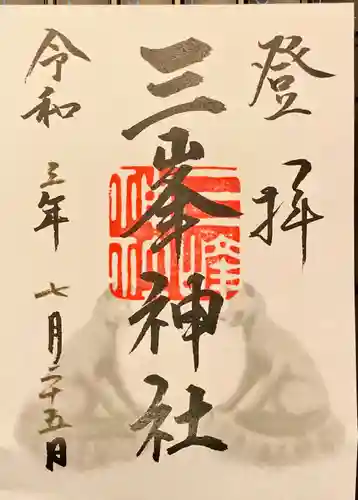 登拝
三峯神社
令和三年七月二十五月